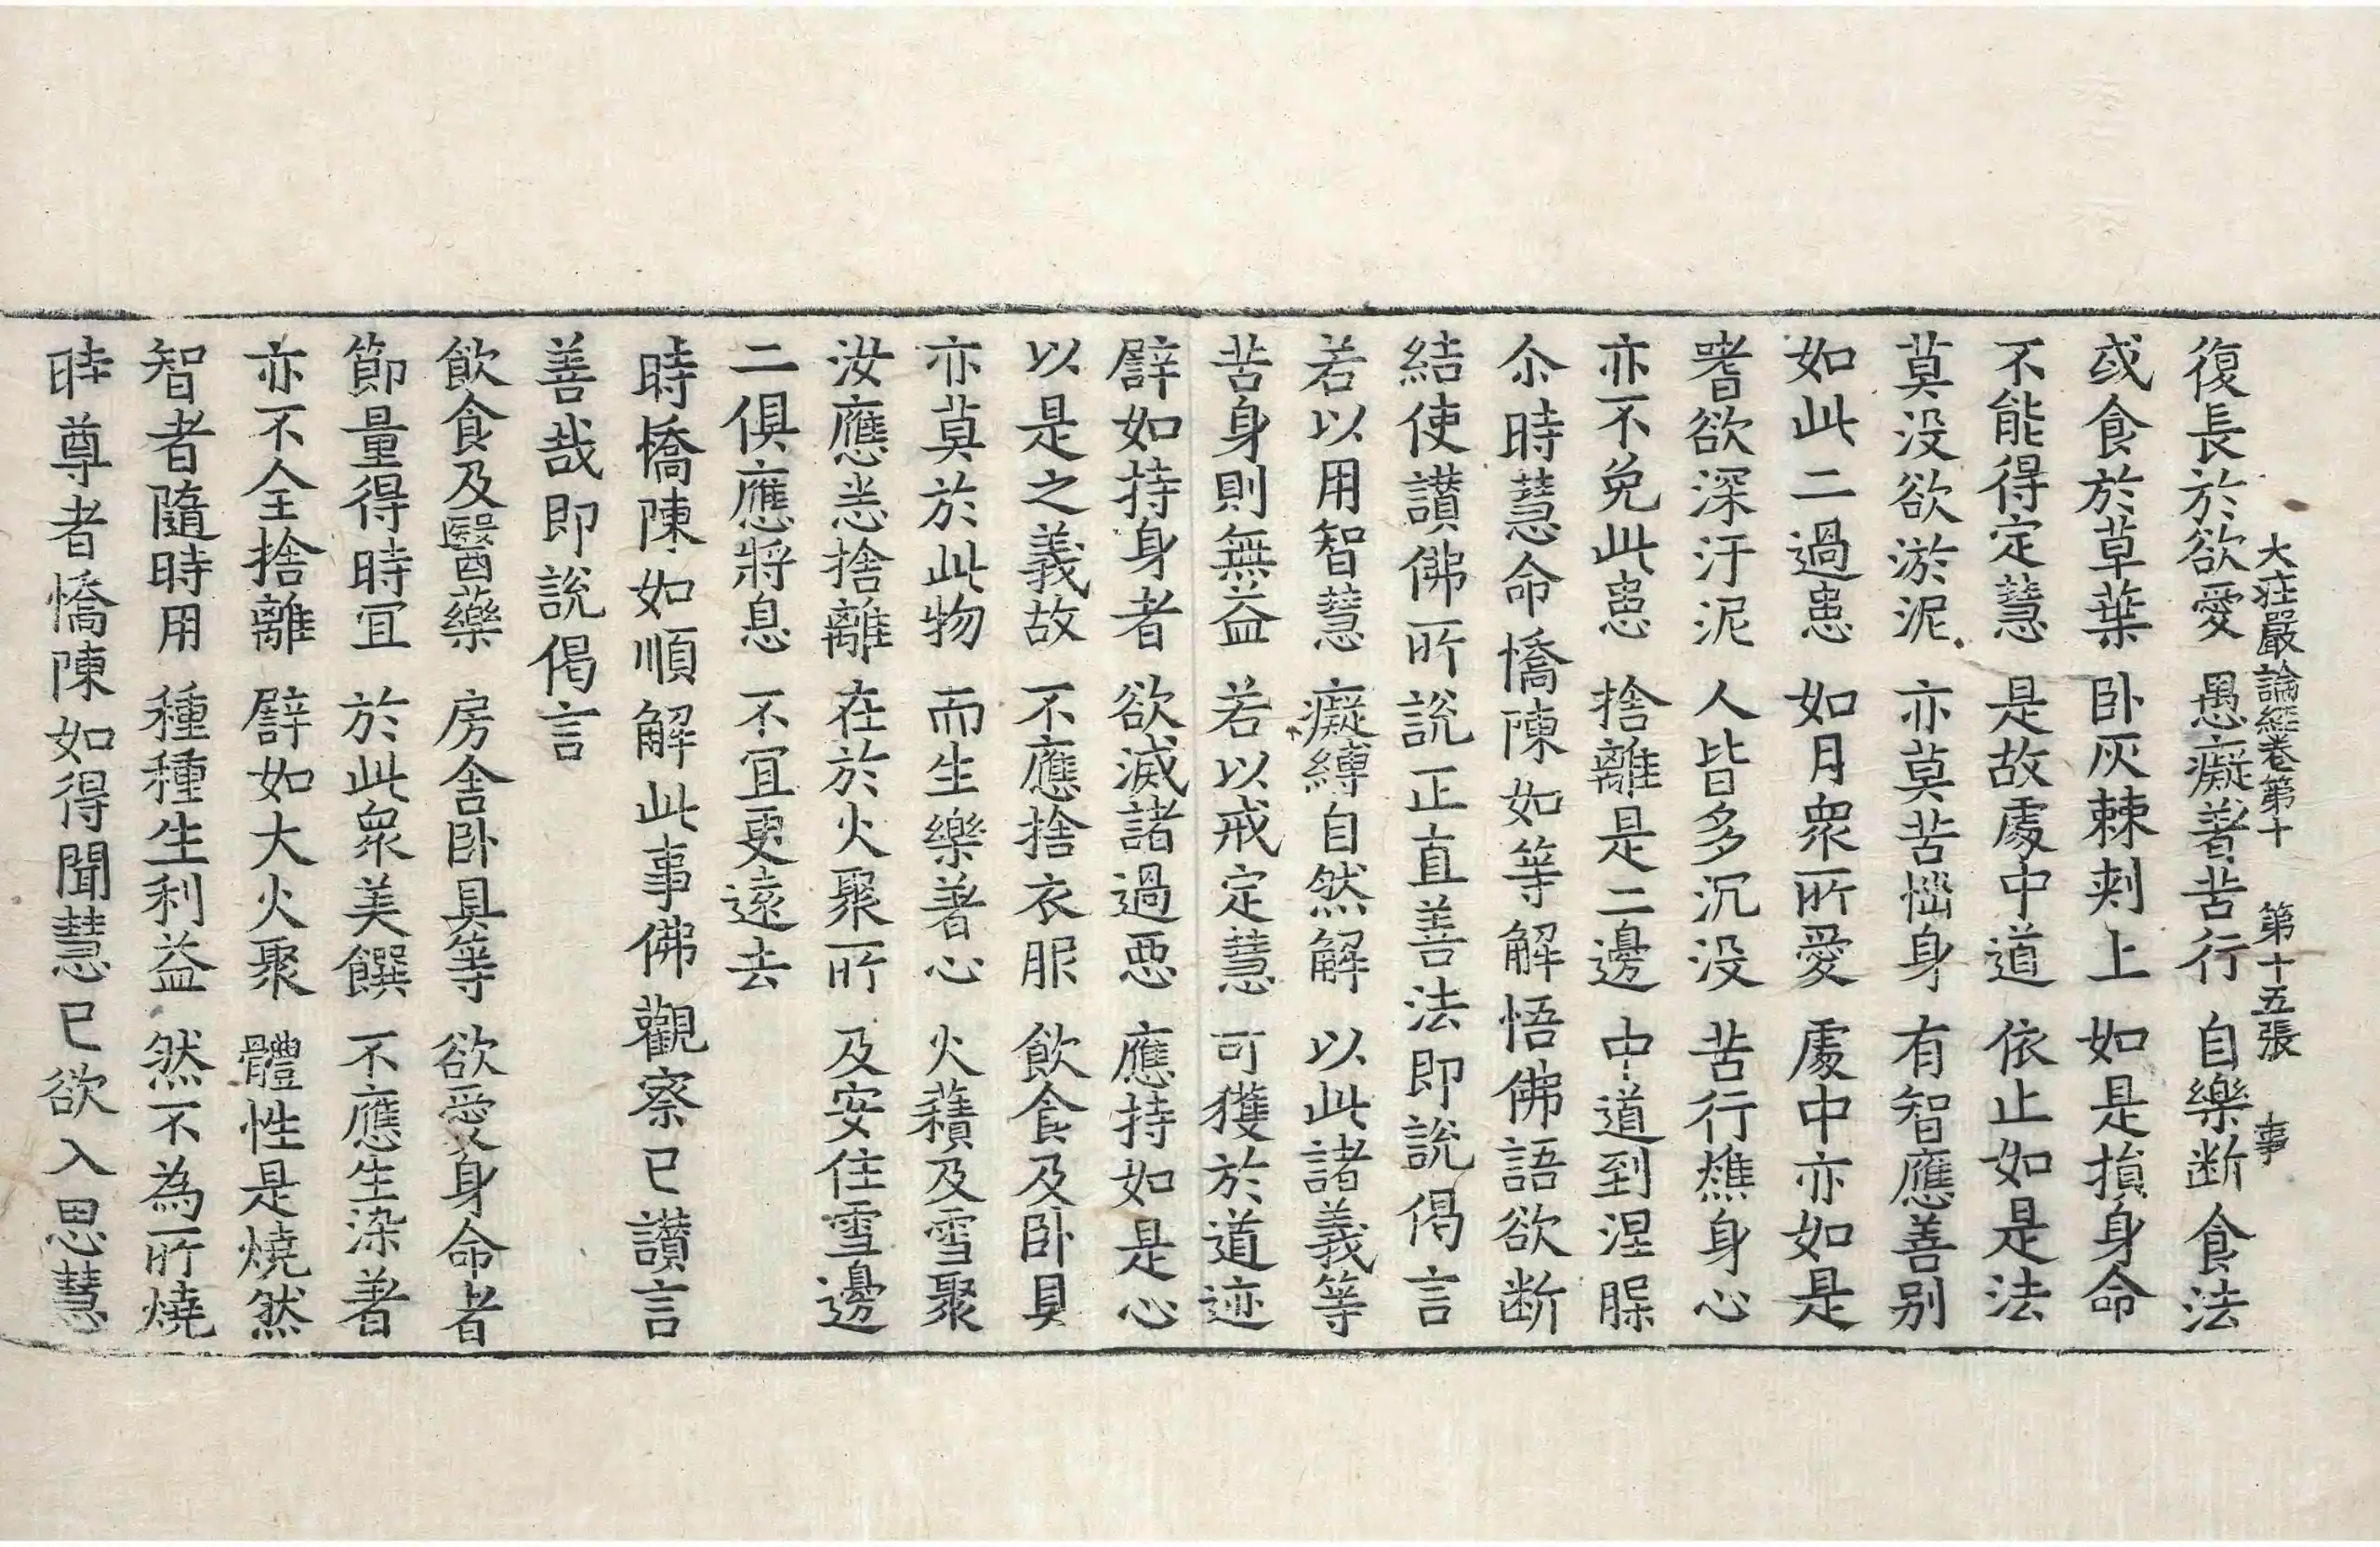 大莊嚴論經卷第十　第十五張　事
復長於欲愛　愚癡著苦行　自樂斷食法
或食於草葉　卧灰棘刺上　如是損身命
不能得定慧　是故處中道　依止如是法
莫没欲淤泥　亦莫苦惱身　有智應善別
如此二過患　如月衆所愛　處中亦如是
嗜欲深汙泥　人皆多沉没　苦行燋身心
亦不免此患　捨離是二邊　中道到涅槃
尒時慧命憍陳如等解悟佛語欲断
結使讃佛所說正直善法即說偈言
若以用智慧　癡縛自然解　以此諸義等
苦身則無益　若以戒定慧　可獲於道迹
譬如持身者　欲滅諸過惡　應持如是心
以是之義故　不應捨衣服　飲食及卧具
亦莫於此物　而生樂著心　火䕸及雪聚
汝應恙捨離　在於火聚所　及安住雪邊
二俱應將息　不冝更遠去
時憍陳如順解此事佛觀察已讃言
善哉即說偈言
飲食及醫藥　房舎卧具等　欲愛身命者
節量得時冝　於此衆美饌　不應生染著
亦不全捨離　譬如大火聚　體性是燒然
智者隨時用　種種生利益　然不為所燒
時尊者憍陳如得聞慧已欲入思慧